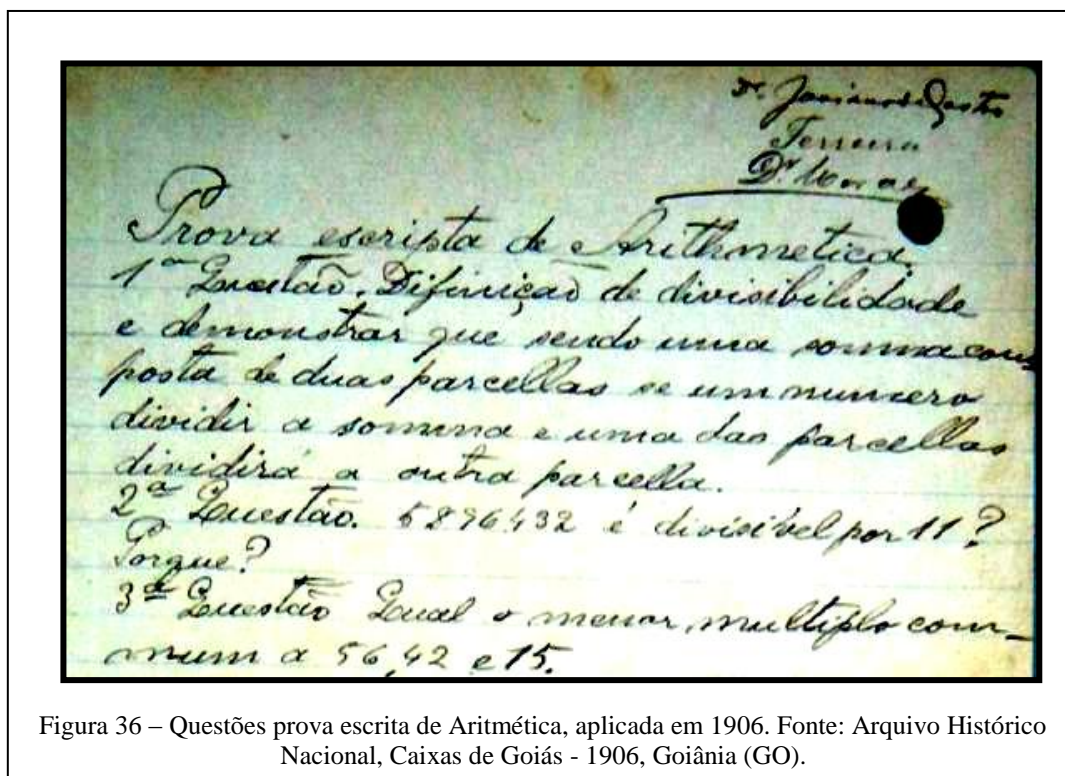 Dr.
Ferreira
Dr Moraes
Prova escripta de Arithmetica.
1ª Questão. Difinição de divisibilidade
e demonstrar que sendo uma somma com
posta de duas parcellas se um numero
dividir a somma e uma das parcellas
dividirá a outra parcella.
2ª Questão. 5896432 é divisivel por 11?
Porque?
3ª Questão Qual o menor multiplo com-
mum a 56, 42 e 15.
Figura 36 – Questões prova escrita de Aritmética, aplicada em 1906. Fonte: Arquivo Histórico
Nacional, Caixas de Goiás - 1906, Goiânia (GO).